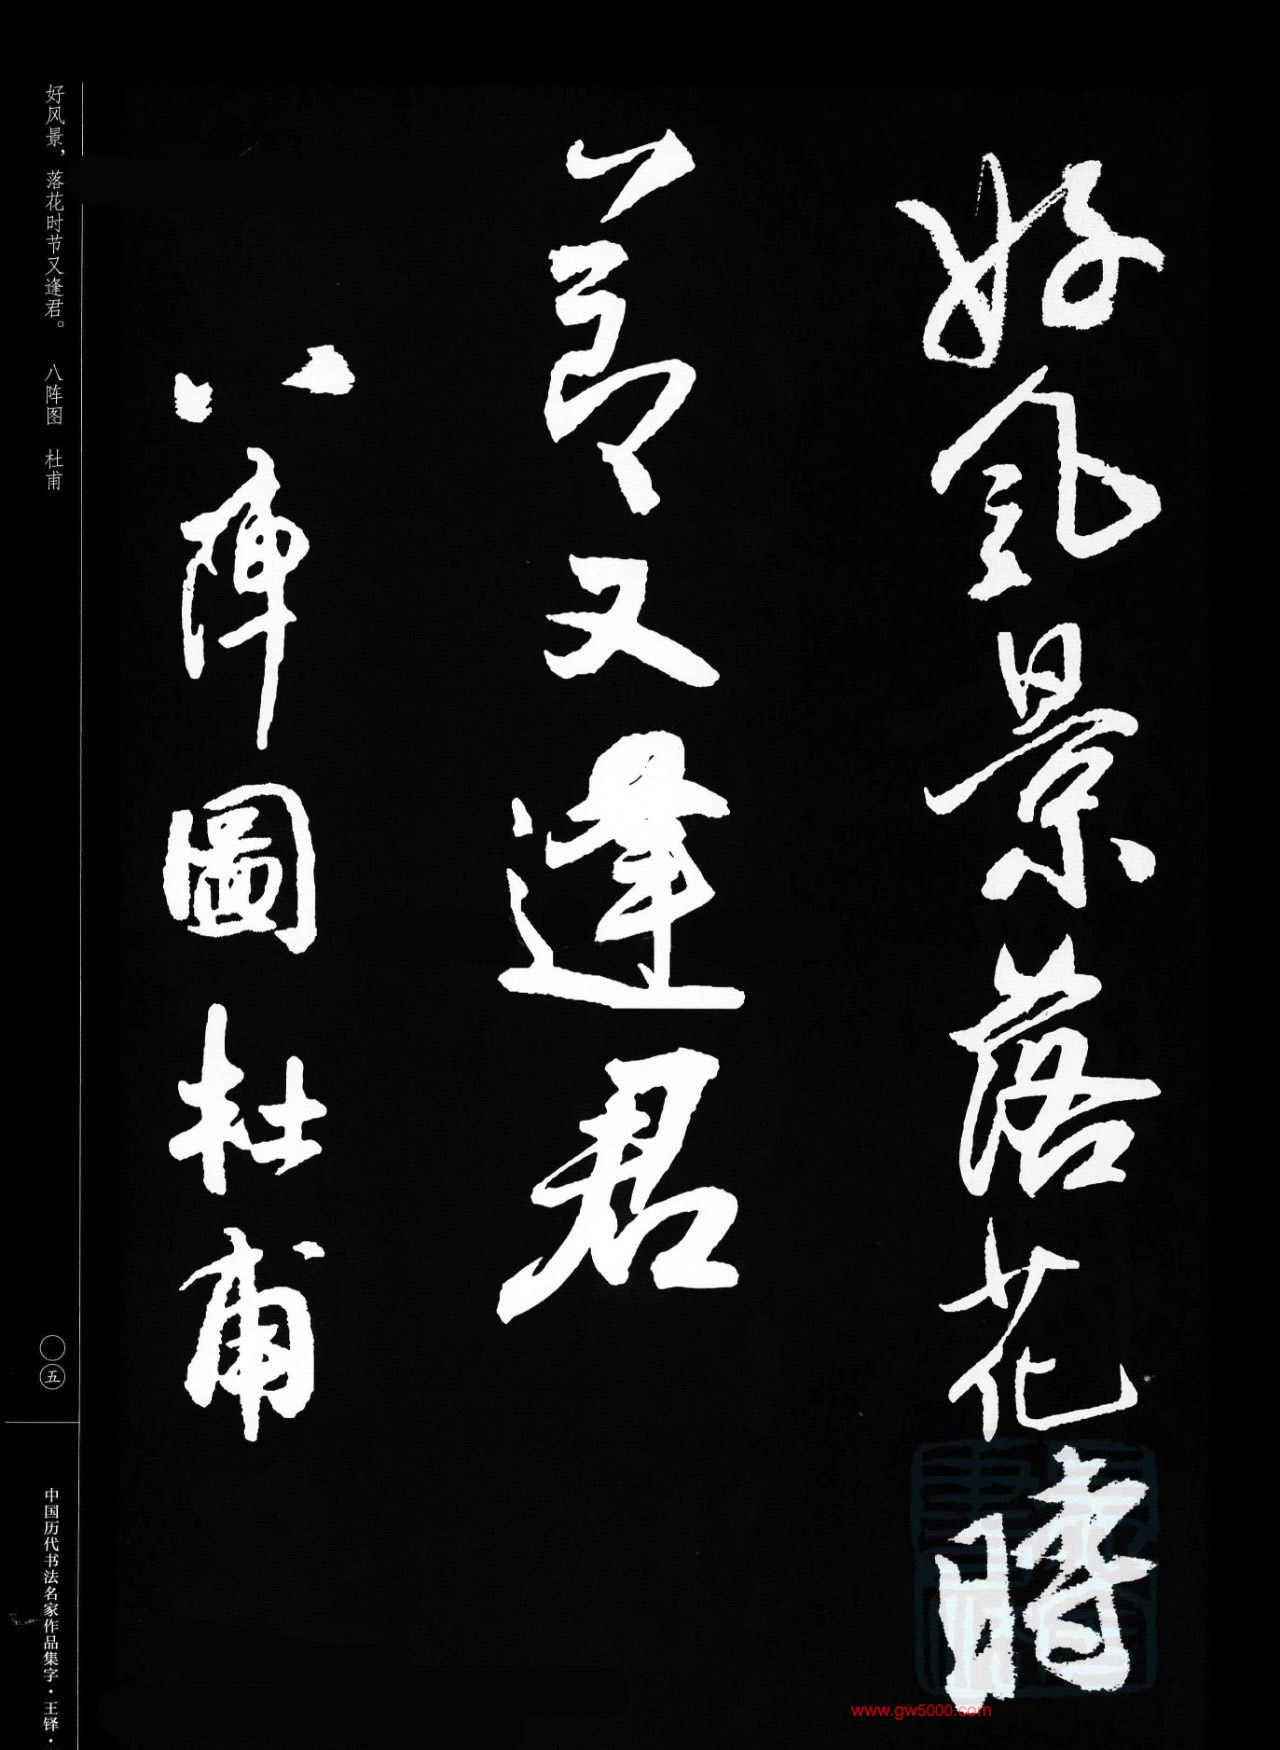 好風景落花時
節又逢君
八陣圖杜甫
好风景，落花时节又逢君。 八阵图 杜甫
〇五
中国历代书法名家作品集字·王铎·
www.gw5000.com